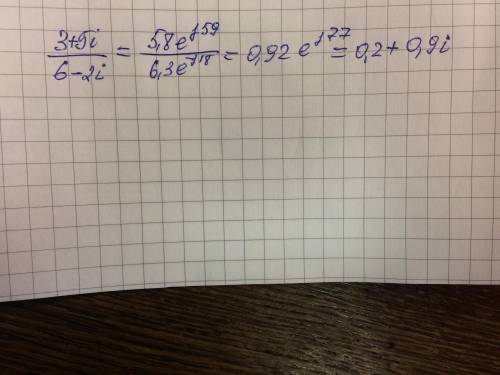 (3+5i)/(6-2i) = (5,8e^{j59})/(6,3e^{-j18}) = 0,92 e^{j77} = 0,2 + 0,9i